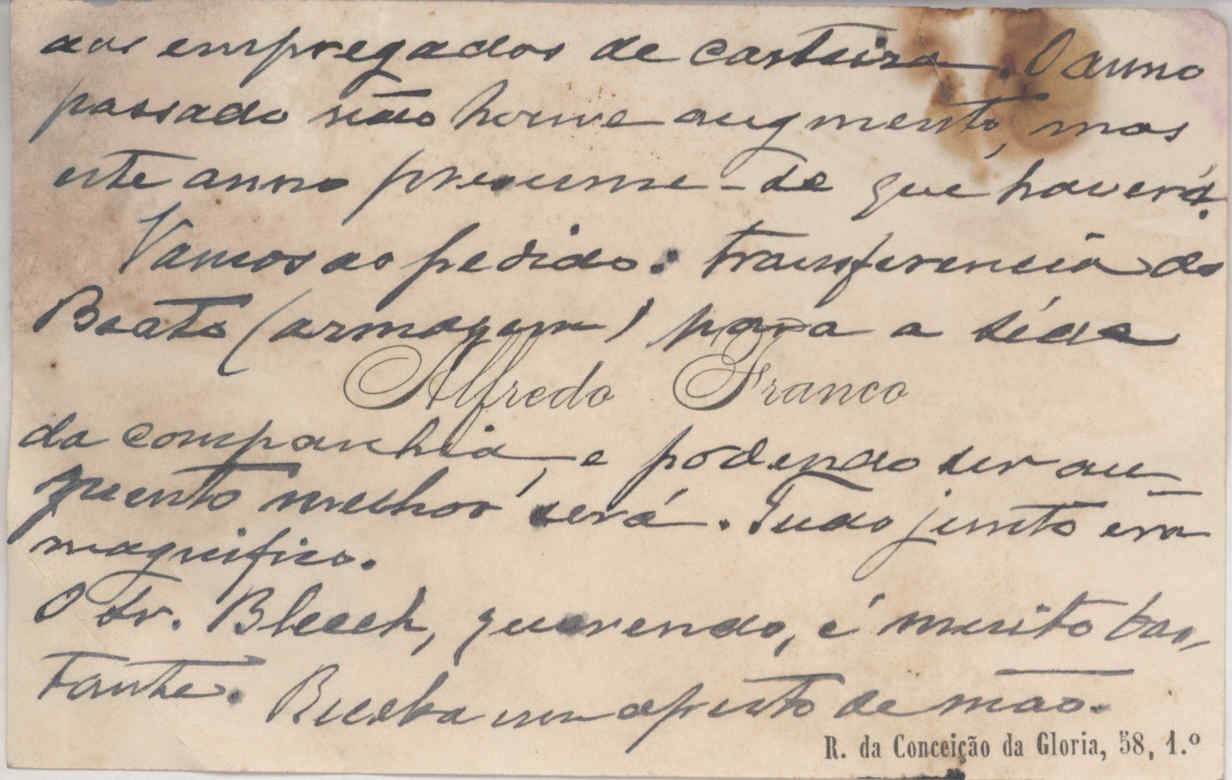 aos empregados de carteira. O anno
passado não houve augmento, mas
este anno presume-se que haverá.
Vamos ao pedido: transferencia do
Beato (armazem) para a séde
Alfredo Franco
da companhia, e podendo ser au-
gmento melhor será. Tudo junto era
magnifico.
O Sr. Bleeck, querendo, é muito bas-
tante. Receba um aperto de mão.
R. da Conceição da Gloria, 58, 1.º